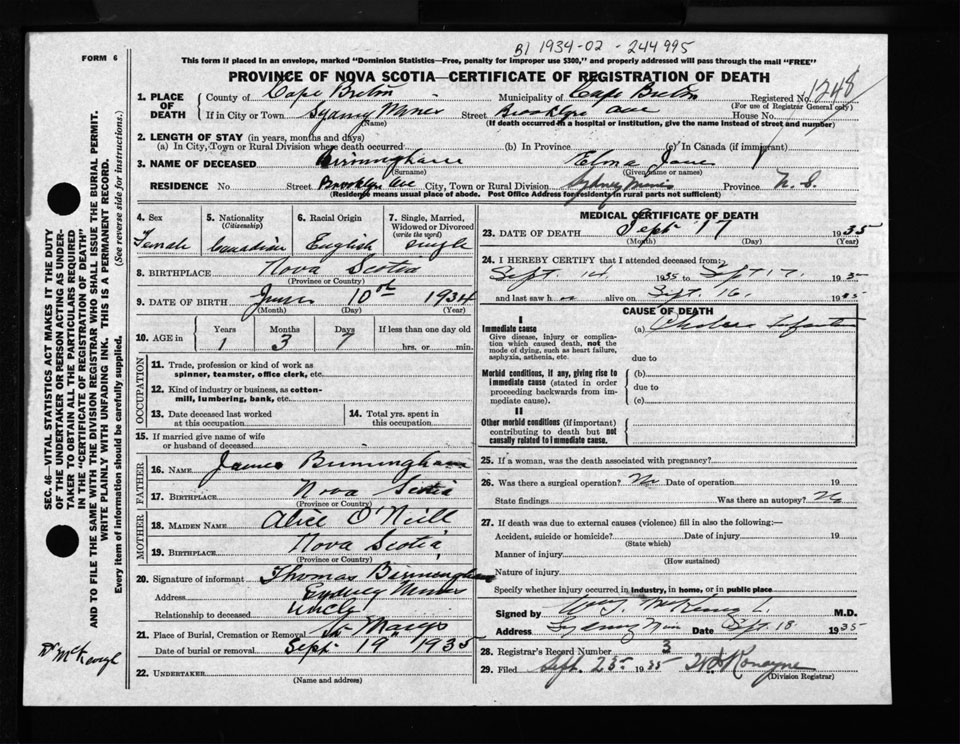 B1 1934-02-244995
FORM 6
This form if placed in an envelope, marked "Dominion Statistics—Free, penalty for improper use $300," and properly addressed will pass through the mail "FREE"
PROVINCE OF NOVA SCOTIA—CERTIFICATE OF REGISTRATION OF DEATH
1. PLACE OF DEATH
County of Cape Breton Municipality of Cape Breton Registered No. 1248
(For use of Registrar General only)
If in City or Town Sydney Mines Street Brooklyn Ave House No.
(Name) (If death occurred in a hospital or institution, give the name instead of street and number)
2. LENGTH OF STAY (in years, months and days)
(a) In City, Town or Rural Division where death occurred (b) In Province (c) In Canada (if immigrant)
3. NAME OF DECEASED Birmingham Elona Jane
(Surname) (Given name or names)
RESIDENCE No Street Brooklyn Ave City, Town or Rural Division Sydney Mines Province N. S.
(Residence means usual place of abode. Post Office Address for residents in rural parts not sufficient)
4. Sex
Female
5. Nationality
(Citizenship)
Canadian
6. Racial Origin
English
7. Single, Married, Widowed or Divorced
(write the word)
single
8. BIRTHPLACE Nova Scotia
(Province or Country)
9. DATE OF BIRTH June 10th 1934
(Month) (Day) (Year)
10. AGE in Years Months Days If less than one day old
1 3 7 hrs. or min.
OCCUPATION
11. Trade, profession or kind of work as spinner, teamster, office clerk, etc.
12. Kind of industry or business, as cotton-mill, lumbering, bank, etc.
13. Date deceased last worked at this occupation
14. Total yrs. spent in this occupation
15. If married give name of wife or husband of deceased
FATHER
16. NAME James Birmingham
17. BIRTHPLACE Nova Scotia
(Province or Country)
MOTHER
18. MAIDEN NAME Alice O'Neill
19. BIRTHPLACE Nova Scotia
(Province or Country)
20. Signature of informant Thomas Birmingham
Address Sydney Mines
Relationship to deceased Uncle
21. Place of Burial, Cremation or Removal St Marys
Date of burial or removal Sept 19 1935
22. UNDERTAKER
(Name and address)
MEDICAL CERTIFICATE OF DEATH
23. DATE OF DEATH Sept 17 1935
(Month) (Day) (Year)
24. I HEREBY CERTIFY that I attended deceased from:
Sept. 14 1935 to Sept 17. 1935
and last saw h er alive on Sept. 16, 1935
CAUSE OF DEATH
I
Immediate cause
Give disease, injury or complication which caused death, not the mode of dying, such as heart failure, asphyxia, asthenia, etc.
(a) Cholera Infantum
due to
Morbid conditions, if any, giving rise to immediate cause (stated in order proceeding backwards from immediate cause).
(b)
due to
(c)
II
Other morbid conditions (if important) contributing to death but not causally related to immediate cause.
25. If a woman, was the death associated with pregnancy?
26. Was there a surgical operation? No Date of operation 19
State findings Was there an autopsy? No
27. If death was due to external causes (violence) fill in also the following:—
Accident, suicide or homicide? Date of injury 19
(State which)
Manner of injury
(How sustained)
Nature of injury
Specify whether injury occurred in industry, in home, or in public place
Signed by M.D.
Address Sydney Mines Date Sept. 18 1935
28. Registrar's Record Number 3
29. Filed Sept. 25 1935
(Division Registrar)
SEC. 46—VITAL STATISTICS ACT MAKES IT THE DUTY
OF THE UNDERTAKER OR PERSON ACTING AS UNDER-
TAKER TO OBTAIN ALL THE PARTICULARS REQUIRED
IN THE "CERTIFICATE OF REGISTRATION OF DEATH"
AND TO FILE THE SAME WITH THE DIVISION REGISTRAR WHO SHALL ISSUE THE BURIAL PERMIT.
WRITE PLAINLY WITH UNFADING INK. THIS IS A PERMANENT RECORD.
Every item of information should be carefully supplied. (See reverse side for instructions.)
Dr McKeough